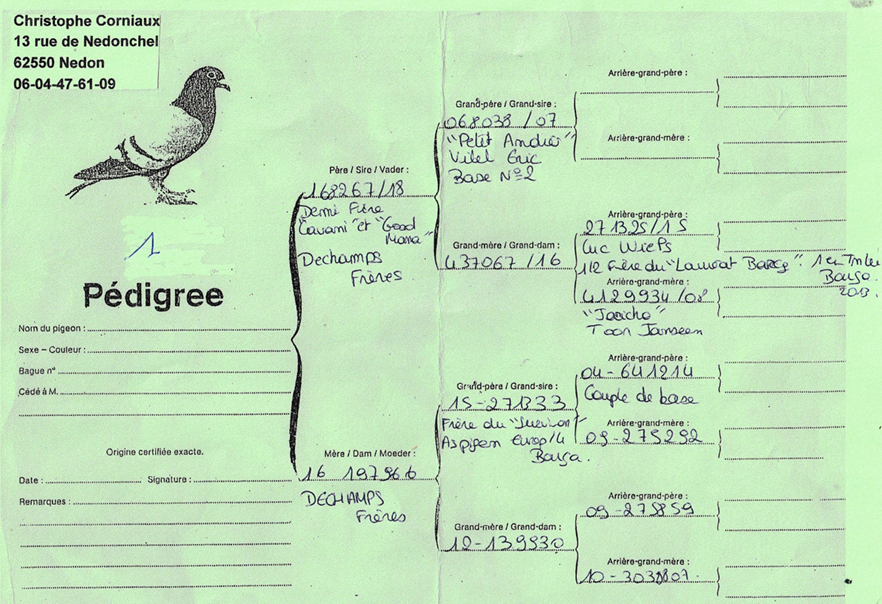 Christophe Corniaux
13 rue de Nedonchel
62550 Nedon
06-04-47-61-09
1
Pédigree
Nom du pigeon :
Sexe – Couleur :
Bague n°
Cédé à M.
Origine certifiée exacte.
Date : Signature :
Remarques :
Père / Sire / Vader :
168267/18
Demi Frère
"Cavani" et "Good
Mana"
Dechamps
Frères
Mère / Dam / Moeder :
16 197966
DECHAMPS
Frères
Grand-père / Grand-sire :
068038 /07
"Petit André"
Vilel Eric
Base N°2
Grand-mère / Grand-dam :
437067 /16
Grand-père / Grand-sire :
15-271333
Frère du
Aspigeon Europ/4
Barça.
Grand-mère / Grand-dam :
12-139930
Arrière-grand-père :
Arrière-grand-mère :
Arrière-grand-père :
271325/15
Luc Wiels
1/2 Frère du "Laureat Barça". 1er
Barça
2013.
Arrière-grand-mère :
4129934 /08
"Jericho"
Toon Janseen
Arrière-grand-père :
04-641214
Couple de base
Arrière-grand-mère :
09-275292
Arrière-grand-père :
09-275859
Arrière-grand-mère :